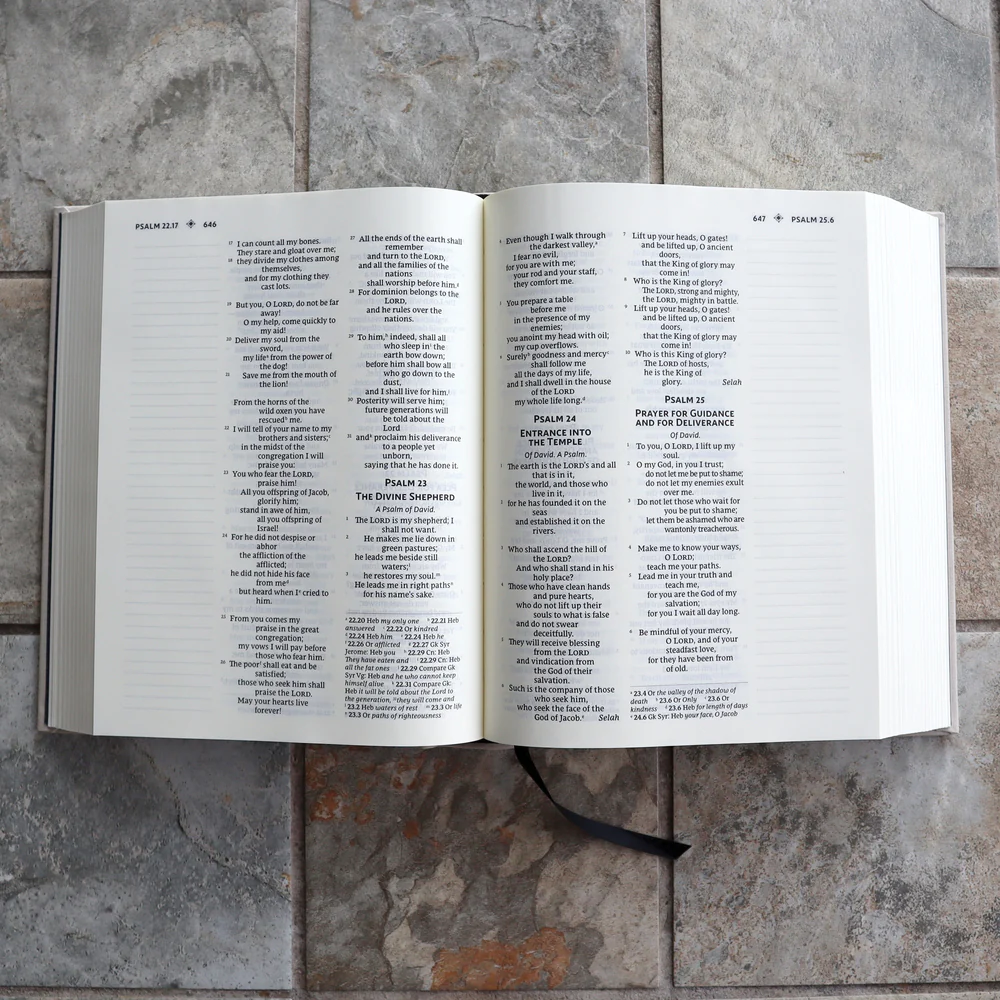 PSALM 22.17 646
17 I can count all my bones.
They stare and gloat over me;
18 they divide my clothes among
themselves,
and for my clothing they
cast lots.
19 But you, O LORD, do not be far
away!
O my help, come quickly to
my aid!
20 Deliver my soul from the
sword,
my life from the power of
the dog!
21 Save me from the mouth of
the lion!
From the horns of the
wild oxen you have
rescued me.
22 I will tell of your name to my
brothers and sisters;
in the midst of the
congregation I will
praise you:
23 You who fear the LORD,
praise him!
All you offspring of Jacob,
glorify him;
stand in awe of him,
all you offspring of
Israel!
24 For he did not despise or
abhor
the affliction of the
afflicted;
he did not hide his face
from me
but heard when I cried to
him.
25 From you comes my
praise in the great
congregation;
my vows I will pay before
those who fear him.
26 The poor shall eat and be
satisfied;
those who seek him shall
praise the LORD.
May your hearts live
forever!
27 All the ends of the earth shall
remember
and turn to the LORD,
and all the families of the
nations
shall worship before him.
28 For dominion belongs to the
LORD,
and he rules over the
nations.
29 To him, indeed, shall all
who sleep in the
earth bow down;
before him shall bow all
who go down to the
dust,
and I shall live for him.
30 Posterity will serve him;
future generations will
be told about the
Lord
31 and proclaim his deliverance
to a people yet
unborn,
saying that he has done it.
PSALM 23
THE DIVINE SHEPHERD
A Psalm of David.
1 The LORD is my shepherd; I
shall not want.
2 He makes me lie down in
green pastures;
he leads me beside still
waters;
3 he restores my soul.
He leads me in right paths
for his name's sake.
22.20 Heb my only one 22.21 Heb
answered 22.22 Or kindred
22.24 Heb him 22.24 Heb he
22.26 Or afflicted 22.27 Gk Syr
Jerome: Heb you 22.29 Cn: Heb
They have eaten and 22.29 Cn: Heb
all the fat ones 22.29 Compare Gk
Syr Vg: Heb and he who cannot keep
himself alive 22.31 Compare Gk:
Heb it will be told about the Lord to
the generation, they will come and
23.2 Heb waters of rest 23.3 Or life
23.3 Or paths of righteousness
647 PSALM 25.6
4 Even though I walk through
the darkest valley,
I fear no evil,
for you are with me;
your rod and your staff,
they comfort me.
5 You prepare a table
before me
in the presence of my
enemies;
you anoint my head with oil;
my cup overflows.
6 Surely goodness and mercy
shall follow me
all the days of my life,
and I shall dwell in the house
of the LORD
my whole life long.
PSALM 24
ENTRANCE INTO
THE TEMPLE
Of David. A Psalm.
1 The earth is the LORD's and all
that is in it,
the world, and those who
live in it,
2 for he has founded it on the
seas
and established it on the
rivers.
3 Who shall ascend the hill of
the LORD?
And who shall stand in his
holy place?
4 Those who have clean hands
and pure hearts,
who do not lift up their
souls to what is false
and do not swear
deceitfully.
5 They will receive blessing
from the LORD
and vindication from
the God of their
salvation.
6 Such is the company of those
who seek him,
who seek the face of the
God of Jacob. Selah
7 Lift up your heads, O gates!
and be lifted up, O ancient
doors,
that the King of glory may
come in!
8 Who is the King of glory?
The LORD, strong and mighty,
the LORD, mighty in battle.
9 Lift up your heads, O gates!
and be lifted up, O ancient
doors,
that the King of glory may
come in!
10 Who is this King of glory?
The LORD of hosts,
he is the King of
glory. Selah
PSALM 25
PRAYER FOR GUIDANCE
AND FOR DELIVERANCE
Of David.
1 To you, O LORD, I lift up my
soul.
2 O my God, in you I trust;
do not let me be put to shame;
do not let my enemies exult
over me.
3 Do not let those who wait for
you be put to shame;
let them be ashamed who are
wantonly treacherous.
4 Make me to know your ways,
O LORD;
teach me your paths.
5 Lead me in your truth and
teach me,
for you are the God of my
salvation;
for you I wait all day long.
6 Be mindful of your mercy,
O LORD, and of your
steadfast love,
for they have been from
of old.
23.4 Or the valley of the shadow of
death 23.6 Or Only 23.6 Or
kindness 23.6 Heb for length of days
24.6 Gk Syr: Heb your face, O Jacob